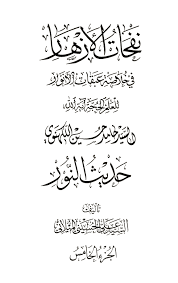 نفحات الأزهار
في خلاصة عبقات الأنوار
للعلم الحجة آية الله
السيد حامد حسين اللكهنوي
حديث النور
تأليف
السيد علي الحسيني الميلاني
الجزء الخامس